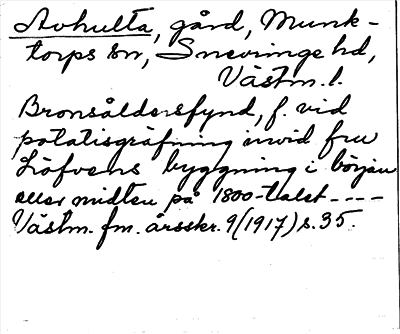 Avhulta, gård, Munk-
torps sn, Snevringe hd,
Västm. l.
Bronsåldersfynd, f. vid
potatisgräfning invid fru
Löfvens byggning i början
eller midten på 1800-talet ----
Västm. fm. årsskr. 9 (1917) s. 35.